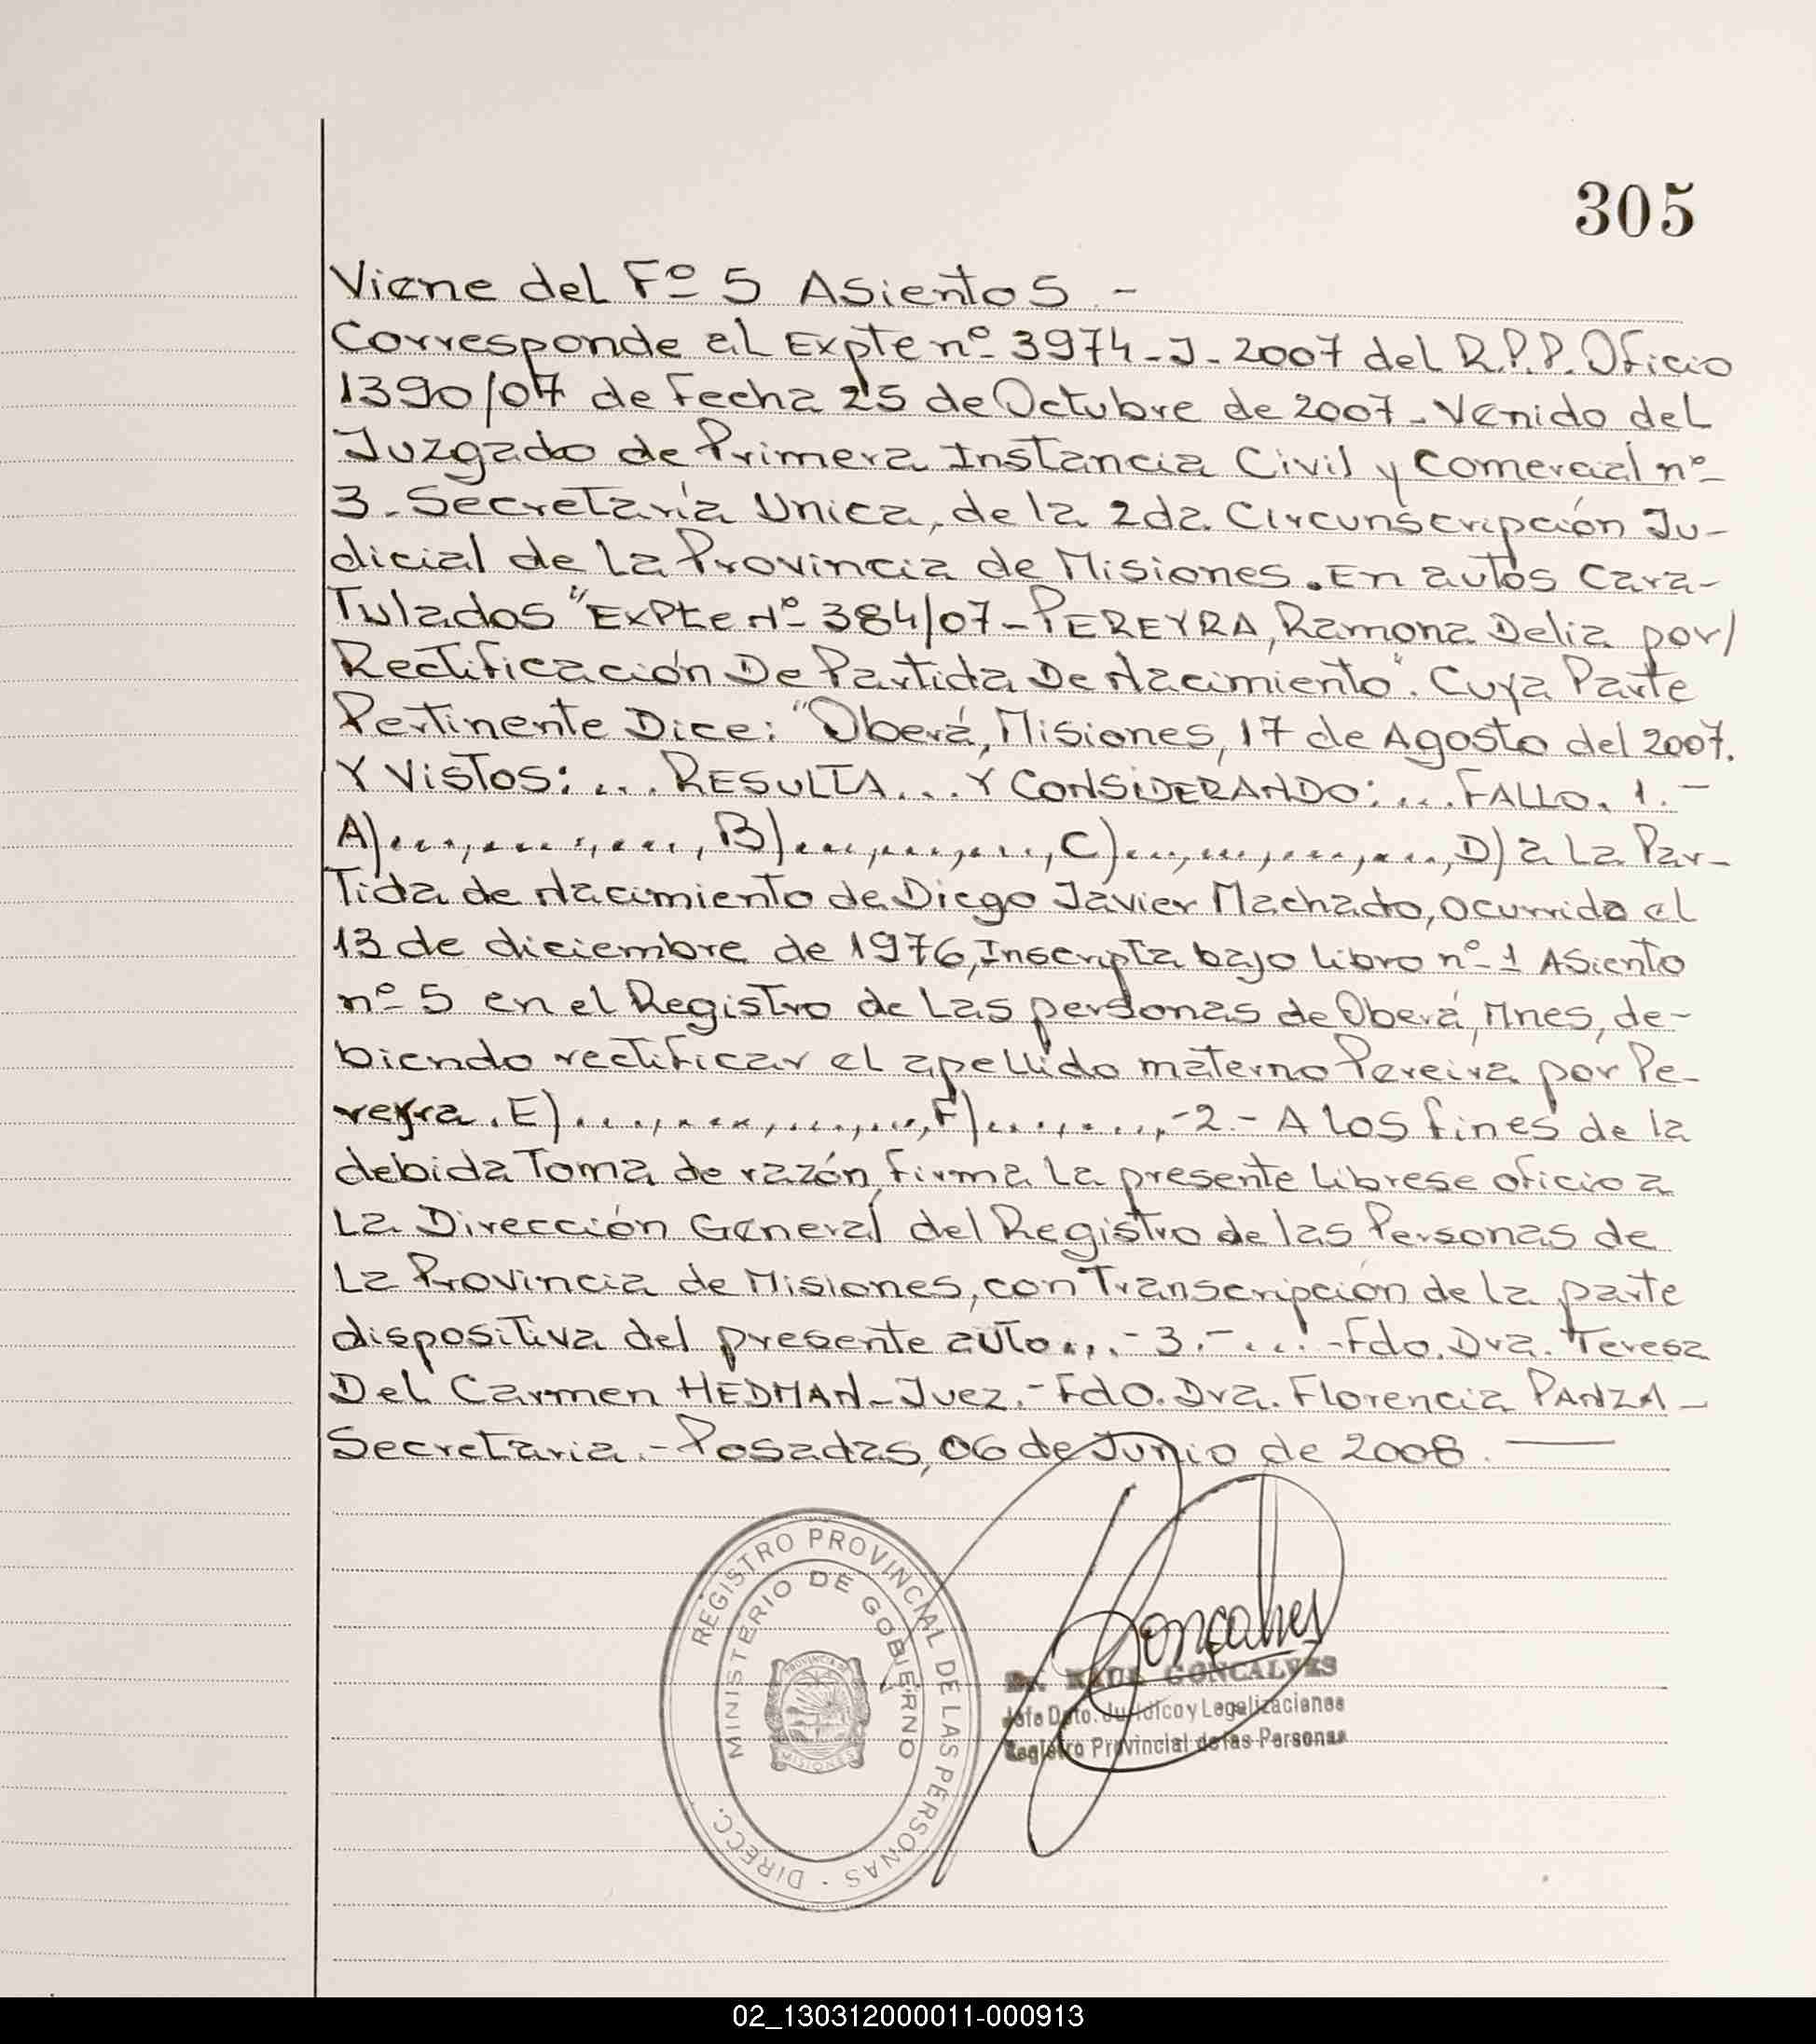 305
Viene del Fº 5 Asiento 5.-
Corresponde al Expte nº 3974-J-2007 del R.P.P. Oficio
1390/07 de Fecha 25 de Octubre de 2007-Venido del
Juzgado de Primera Instancia Civil y Comercial nº
3-Secretaría Unica, de la 2da Circunscripción Ju-
dicial de La Provincia de Misiones. En autos Cara-
Tulados "Expte Nº 384/07-PEREYRA, Ramona Delia por/
Rectificación De Partida De Nacimiento". Cuya Parte
Pertinente Dice: "Oberá, Misiones, 17 de Agosto del 2007.
Y VISTOS:... RESULTA... Y CONSIDERANDO:... FALLO. 1.-
A)..............., B)..............., C)..............., D) a La Par-
Tida de Nacimiento de Diego Javier Machado, ocurrido el
13 de diciembre de 1976, Inscripta bajo libro nº 1 Asiento
nº 5 en el Registro de Las personas de Oberá, Mnes, de-
biendo rectificar el apellido materno Pereira por Pe-
reyra. E)..............., F)..........-2.- A los fines de la
debida Toma de razón, firma La presente librese oficio a
La Dirección General del Registro de las Personas de
La Provincia de Misiones, con Transcripción de la parte
dispositiva del presente auto...-3.-....-Fdo. Dra. Teresa
Del Carmen HEDMAN-Juez.-Fdo. Dra. Florencia PANZA-
Secretaria.-Posadas, 06 de Junio de 2008.
REGISTRO PROVINCIAL DE LAS PERSONAS · DIRECC.
MINISTERIO DE GOBIERNO
PROVINCIA DE
MISIONES
Goncalves
Dr. RAUL GONCALVES
Jefe Dpto. Jurídico y Legalizaciones
Registro Provincial de las Personas
02_130312000011-000913